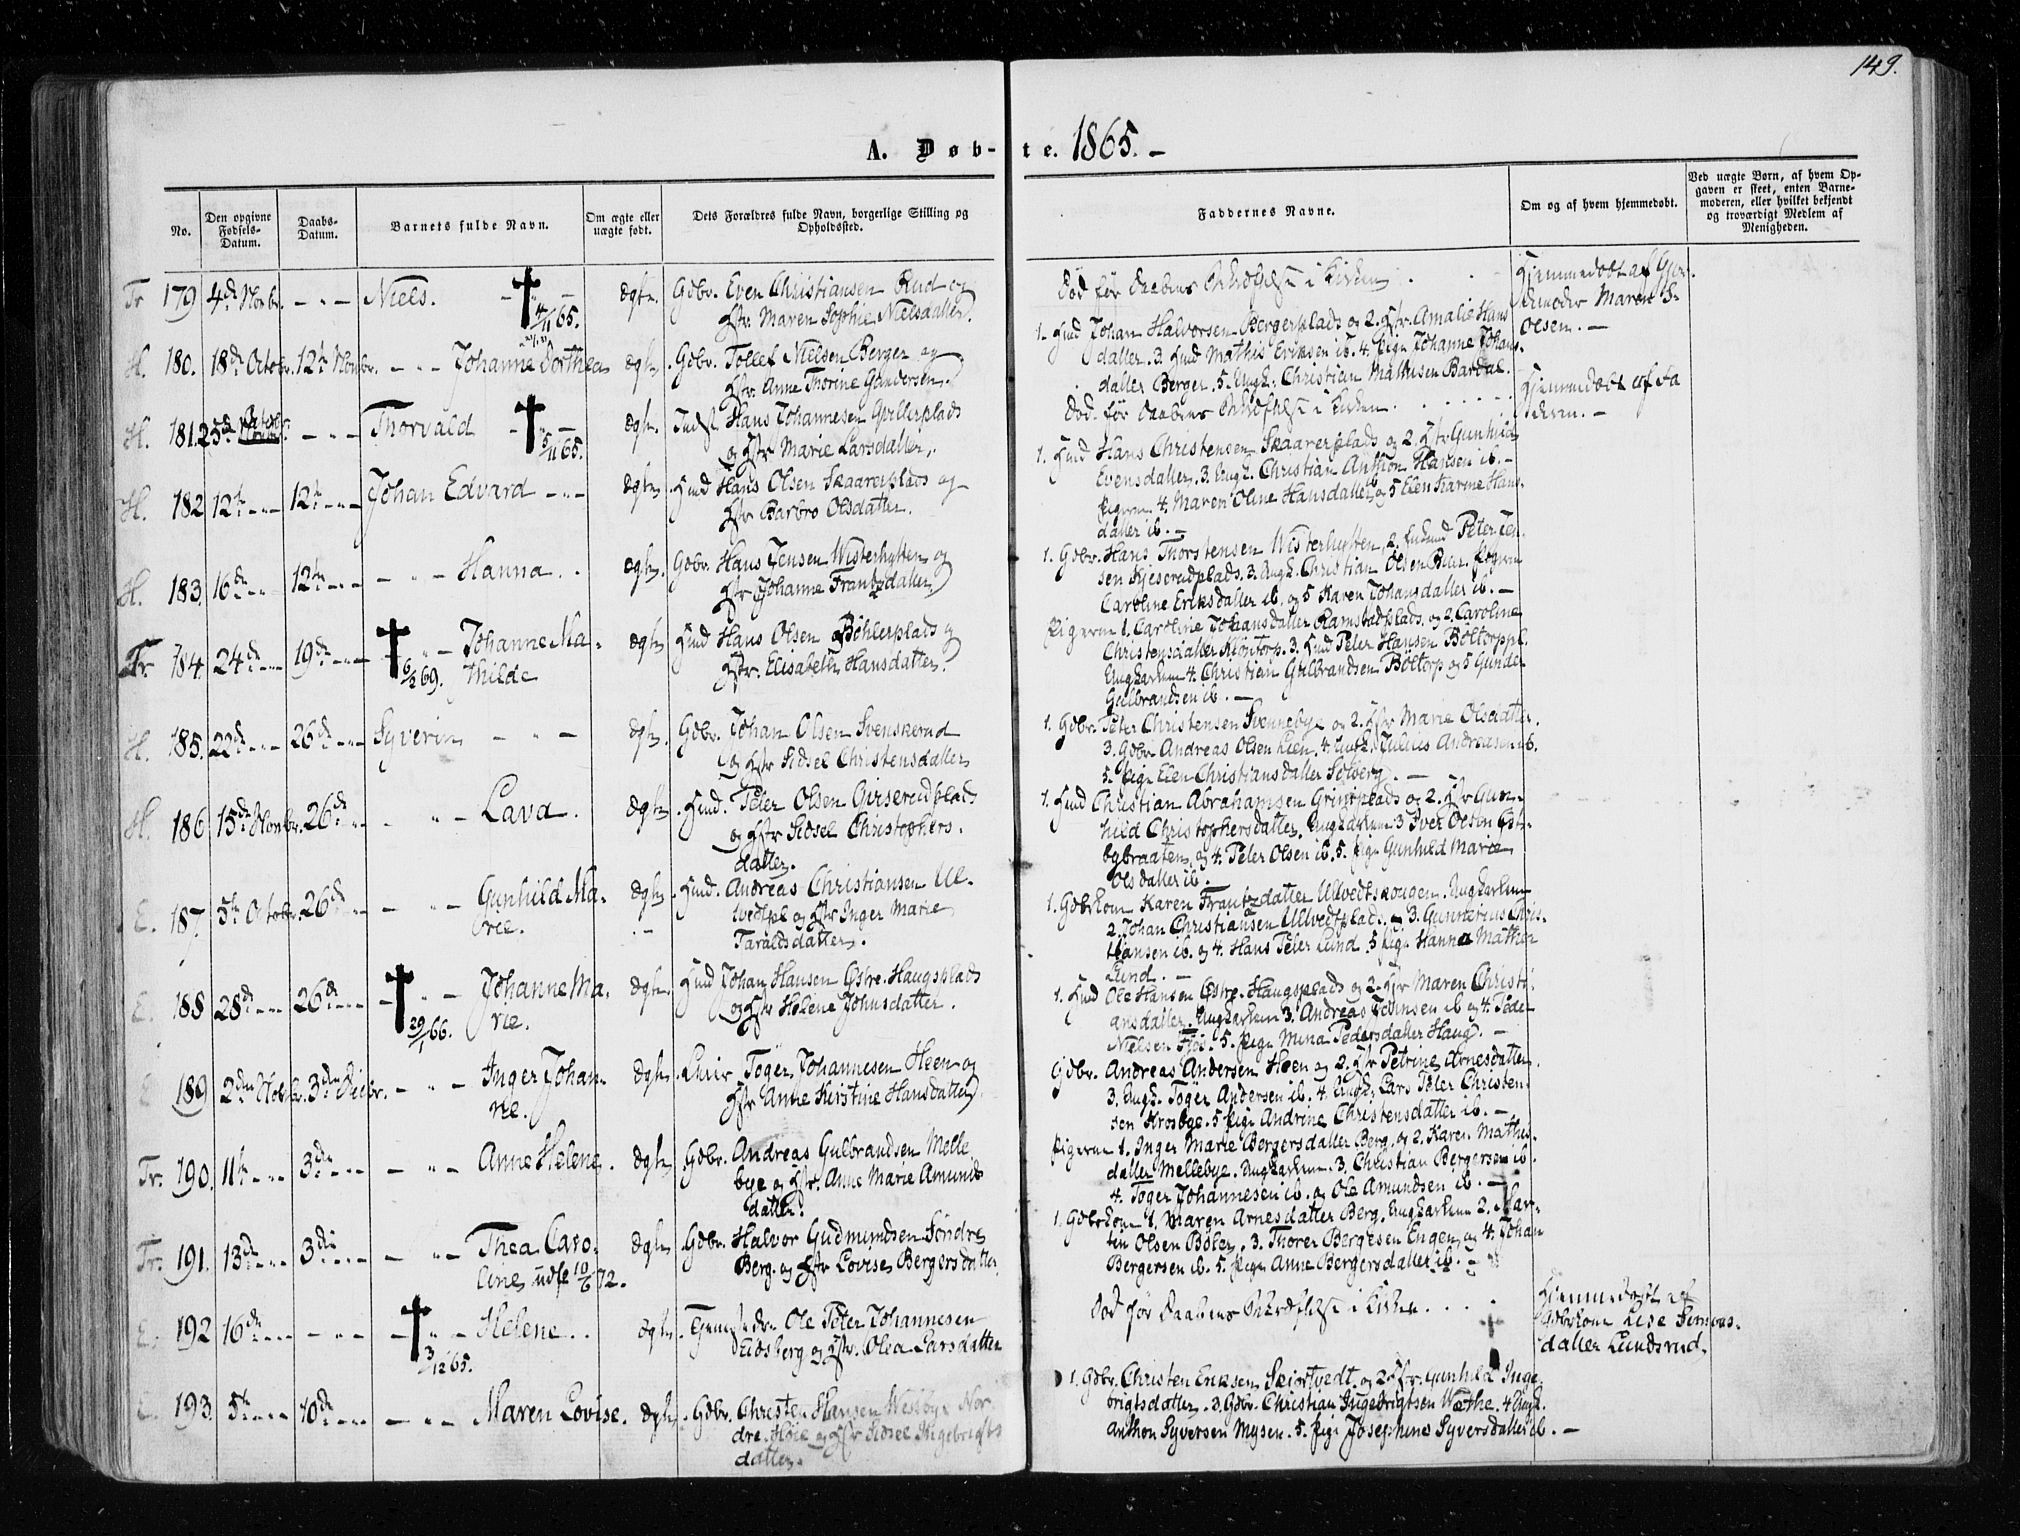 149.
A. Døb-te. 1865. -
No.
Den opgivne Fødsels-Datum.
Daabs-Datum.
Barnets fulde Navn.
Om ægte eller uægte født.
Dets Forældres fulde Navn, borgerlige Stilling og Opholdssted.
Faddernes Navne.
Om og af hvem hjemmedøbt.
Ved uægte Børn, af hvem Opgaven er skeet, enten Barnemoderen, eller hvilket bekjendt og troværdigt Medlem af Menigheden.
Tr 179 4de Novbr. - " - Niels. 4/11 65. ægte. Gdbr. Even Christiansen Rud og
Hstr. Maren Sophie Nielsdatter.
Død før Daabens Bekræftelse i Kirken
Hjemmedøbt af
Maren
Olsen. -
H. 180. 18de Octobr. 12te Novbr. - " - Johanne Dorthea ægte. Gdbr. Tollef Nielsen Berger og
Hstr. Anne Thorine Gundersen.
1. Hmd Johan Halvorsen Bergerplads og 2. Hstr. Amalie Hans
datter. 3. Hmd Mathis Eriksen ib. 4. Pige Johanne Johans-
datter Berger. 5. Ungk. Christian Mathisen Bardal.
H. 181. 25de Octobr. - " - Thorvald 5/11 65. ægte. Indst. Hans Johannesen
og Hstr Marie Larsdatter.
Død før Daabens Bekræftelse i Kirken
Hjemmedøbt af Fa
deren. -
H. 182 12te - " - 12te - " - Johan Edvard - " - ægte. Hmd Hans Olsen Skaarerplads og
Hstr Barbro Olsdatter.
1. Hmd Hans Christensen Skaarerplads og 2. Hstr Gunhild
Evensdatter. 3. Ungk. Christian Anthon Hansen ib. -
Pigerne 4. Maren Oline Hansdatter og 5 Elen Karine Hans-
datter ib. -
H. 183. 16de - " - 12te - " - - " - Hanna. ægte. Gdbr. Hans Jensen Westerhytten og
Hstr Johanne Frantzdatter
1. Gdbr. Hans Thorstensen Westerhytten, 2. Peter Jen
sen 3. Ungk. Christian Olsen Pigerne
Caroline Eriksdatter ib. og 5 Karen Johansdatter ib. -
Tr. 184. 24de - " - 19de - " - 6/2 69. Johanne Ma-
thilde
ægte Hmd Hans Olsen Bøhlerplads og
Hstr. Elisabeth Hansdatter.
Pigerne 1. Caroline Johansdatter Ramstadplads. og 2. Caroline
Christensdatter 3. Hmd Peter Hansen Boltorppl.
Ungkarlene 4. Christian Gulbrandsen Boltorp og 5 Gunder
Gulbrandsen ib. -
H. 185. 22de - " - 26de - " - Syverin - " - ægte. Gdbr. Johan Olsen Svenskerud
og Hstr Sidsel Christensdatter
1. Gdbr. Peter Christensen Svennebye og 2. Hstr Marie Olsdatter.
3. Gdbr Andreas Olsen Lien. 4. Ungk. Julius Andreasen ib.
5. Pige Elen Christiansdatter Solberg. -
H. 186. 15de Novbr. 26de - " - Lava. ægte. Hmd. Peter Olsen
og Hstr Sidsel Christophers-
datter.
1. Hmd Christian Abrahamsen og 2. Hstr Gun-
hild Christophersdatter. Ungkarlene 3 Iver Olsen
og 4. Peter Olsen ib. 5. Pige Gunhild Marie
Olsdatter ib.
E. 187. 5te Octobr. 26de - " - - " - Gunhild Ma-
rie.
ægte. Hmd. Andreas Christiansen Ul-
vedtpl og Hstr Inger Marie
Taraldsdatter.
1. Gdbrkone Karen Frantzdatter Ulvedtskougen. Ungkarlene
2. Johan Christiansen Ulvedtplads. og 3. Gunnerius Chris-
tiansen ib. og 4. Hans Peter Lund. 5 Pige Hanna Mathea
Lund. -
E. 188 28de - " - 26de - " - 29/1 66. Johanne Ma-
rie.
ægte. Hmd Johan Hansen Østre. Haugsplads
og Hstr Helene Johnsdatter.
1. Hmd Ole Hansen Østre. Haugsplads og 2. Hstr Maren Christi-
ansdatter. Ungkarlene 3. Andreas ib og 4. Peder
Nielsen 5. Pige Mina Pedersdatter Haug. -
E 189 2den Novbr. 3die Decbr. - " - Inger Johan-
ne.
ægte. Töger Johannesen Heen og
Hstr Anne Kirstine Hansdatter.
Gdbr. Andreas Andersen Heen og 2. Hstr Petrine Arnesdatter.
3. Ungk. Töger Andersen ib. 4. Ungk. Lars Peter Christen-
sen Krosbye. 5 Pige Andrine Christensdatter ib. -
Tr. 190. 11te - " - 3die - " - - " - Anne Helene. ægte Gdbr. Andreas Gulbrandsen Melle
bye og Hstr. Anne Marie Amunds
datter.
Pigerne 1. Inger Marie Bergersdatter Berg. og 2. Karen Mathis-
datter Mellebye. Ungkarlene. 3. Christian Bergersen ib.
4. Töger Johannesen ib. og Ole Amundsen ib. -
Tr. 191. 13de - " - 3die - " - - " - Thea Caro-
line, udfl 10/6 72.
ægte. Gdbr. Halvor Gudmundsen Søndre
Berg. og Hstr Lovise Bergersdatter.
1. Gdbrkone 1. Maren Arnesdatter Berg. Ungkarlene 2. Mar-
tin Olsen Böler, 3. Thorer Bergesen Engen, og 4. Johan
Bergersen ib. 5. Pige Anne Bergersdatter ib. -
E. 192 16de - " - - " - 3/12 65. Helene. ægte. Ole Peter Johannesen
Eidsberg og Hstr. Olea Larsdatter
Død før Daabens Bekræftelse i Kirken.
Hjemmedøbt af
Gdbrkone Lise
datter Lundsrud.
E. 193. 5te - " - 10de - " - - " - Maren Lovise. ægte. Gdbr. Christen Hansen Westbye Nor
dre. og Hstr Sidsel Ingebrigts
datter.
1. Gdbr. Christen Eriksen Skjortvedt, og 2 Hstr. Gunhild Inge-
brigtsdatter. 3. Gdbr. Christian Ingebrigtsen Wæthe. 4 Ungk.
Anthon Syversen Mysen. 5. Pige Josephine Syversdatter ib. -